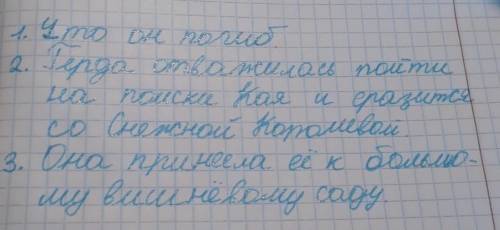 1. Что он погиб.
2. Герда отважилась пойти
на поиски Кая и сразится
со Снежной Королевой.
3. Она принесла её к большо-
му вишнёвому саду.